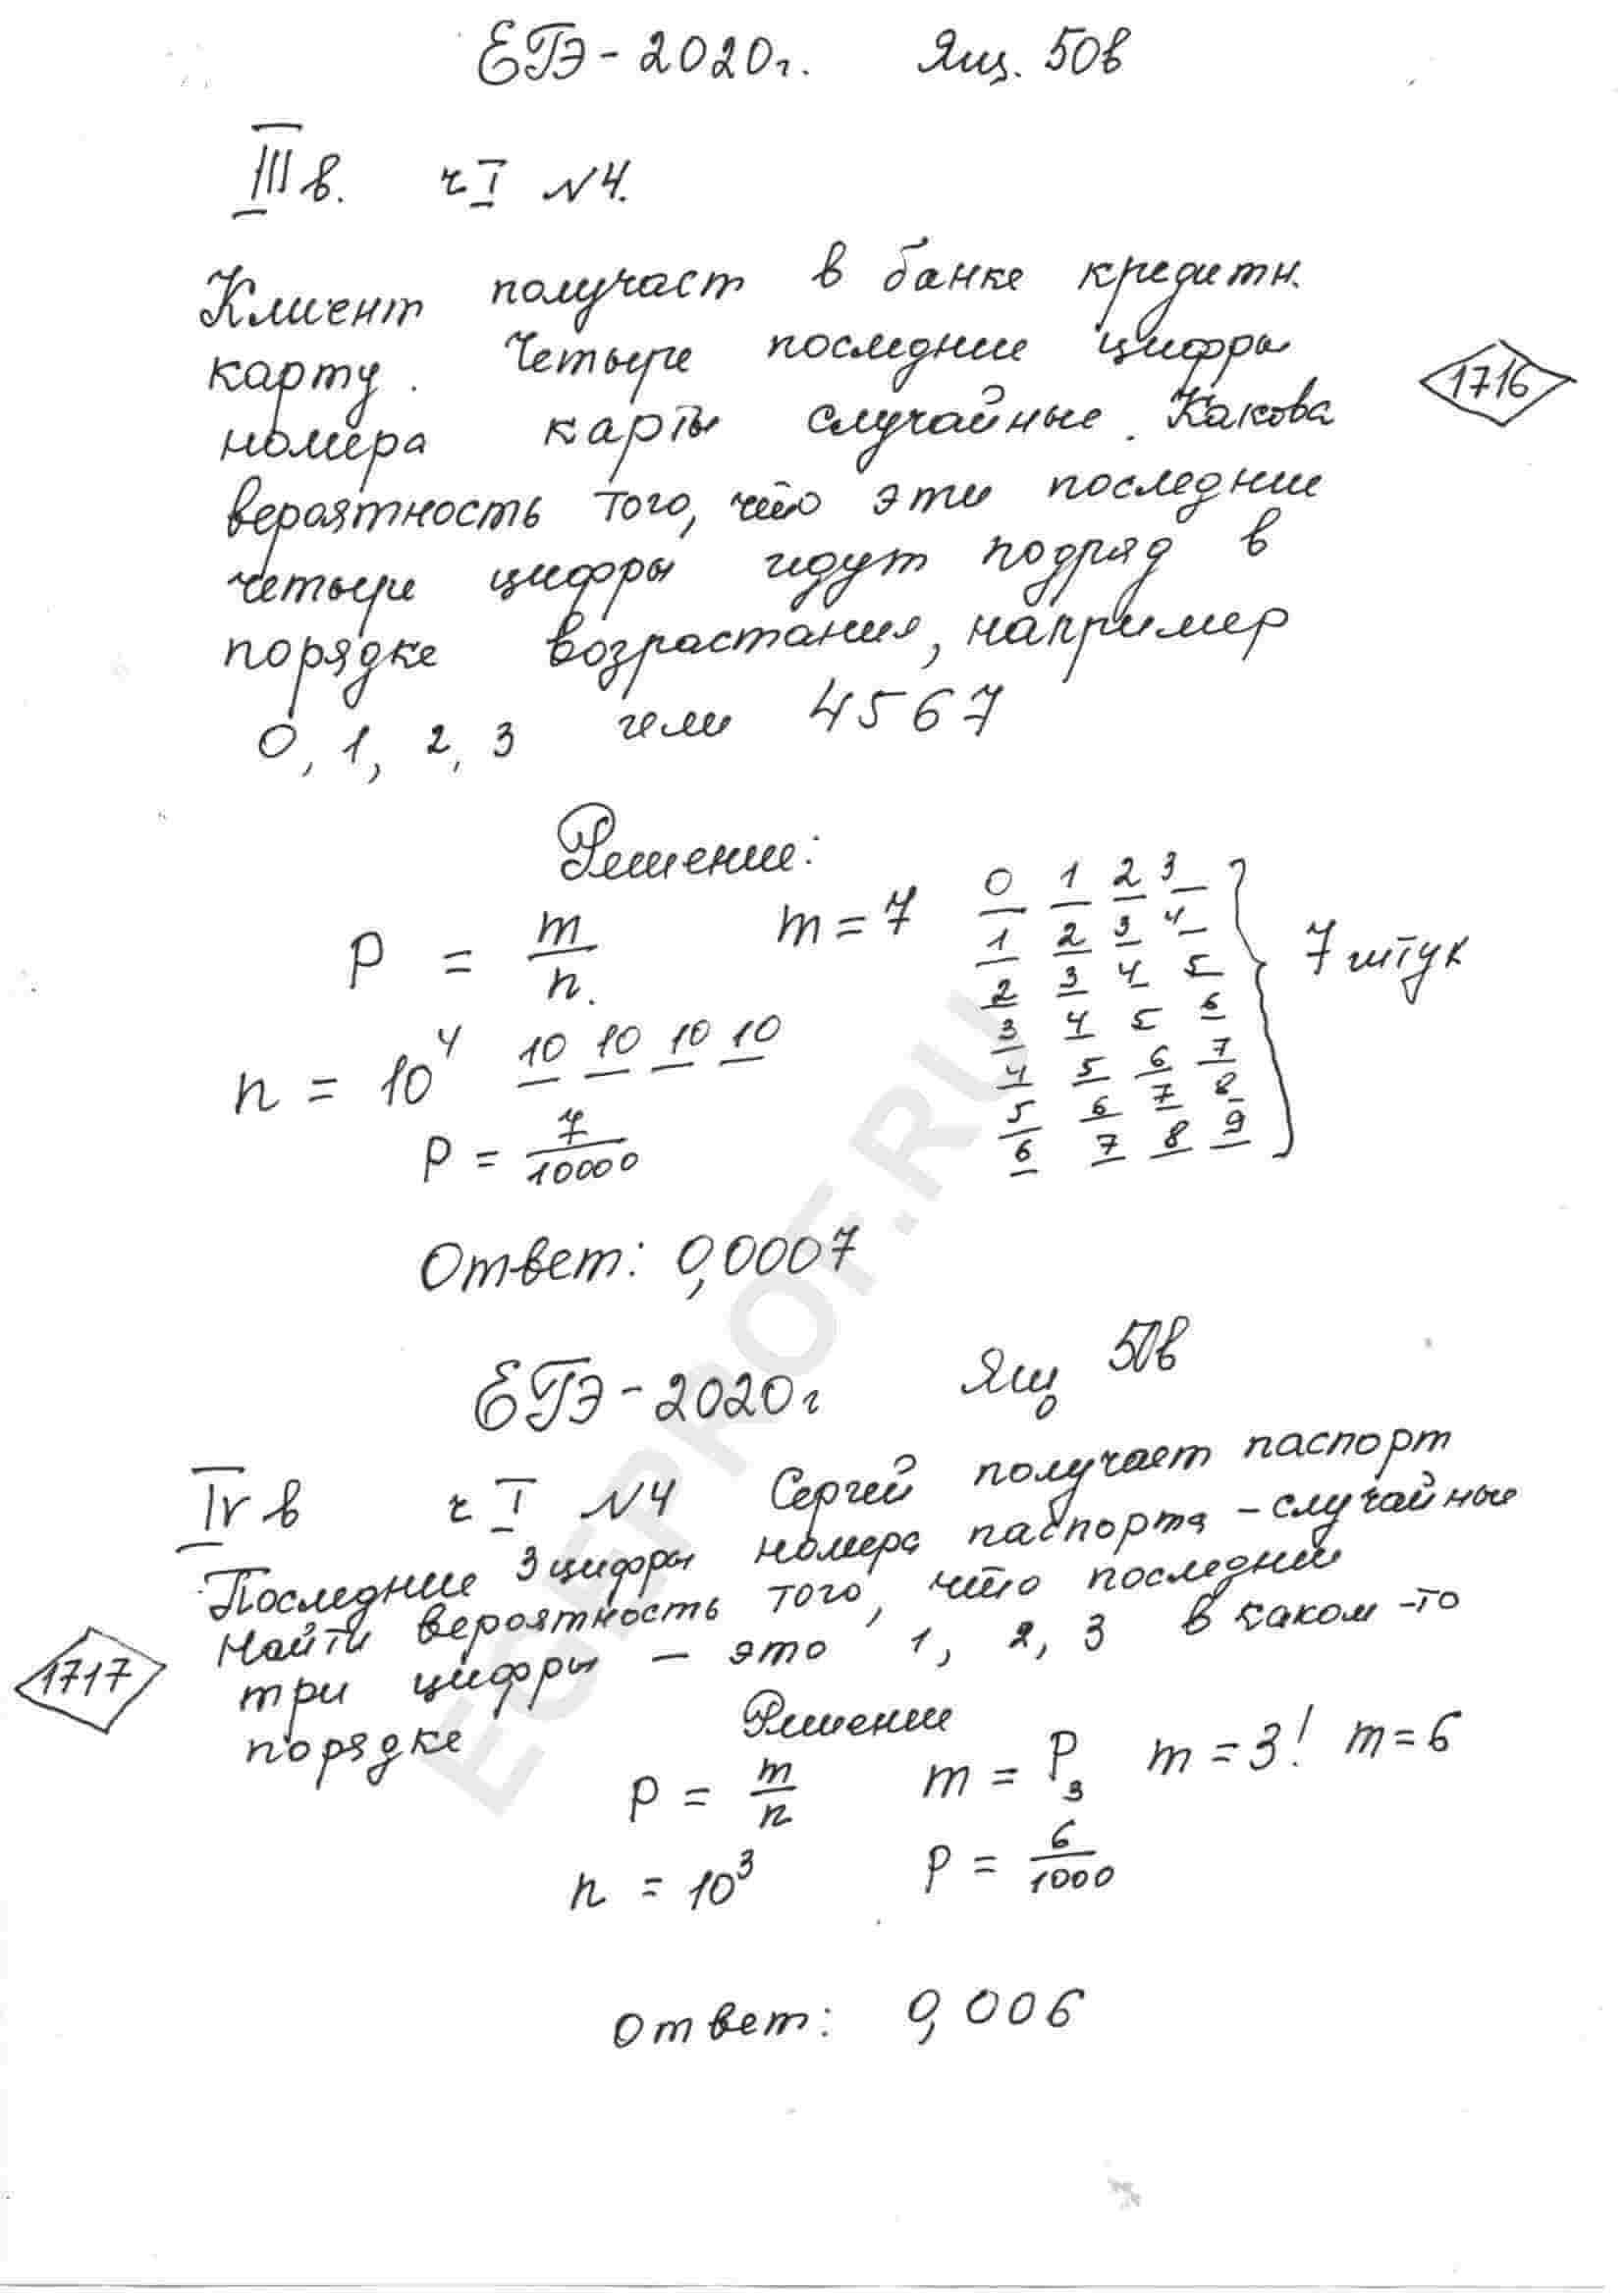 ЕГЭ-2020г. Ящ. 50в
III в. ч I №4.
Клиент получает в банке кредитн.
карту. Четыре последние цифры
1716
номера карты случайные. Какова
вероятность того, что эти последние
четыре цифры идут подряд в
порядке возрастания, например
0, 1, 2, 3 или 4567
Решение:
P = m/n. m = 7
0 1 2 3
1 2 3 4
2 3 4 5
3 4 5 6
4 5 6 7
5 6 7 8
6 7 8 9
7 штук
n = 10^4 10 10 10 10
P = 7/10000
Ответ: 0,0007
ЕГЭ-2020г Ящ 50в
IV в ч I №4 Сергей получает паспорт
Последние 3 цифры номера паспорта - случайные
Найти вероятность того, что последние
1717
три цифры - это 1, 2, 3 в каком-то
порядке
Решение
P = m/n m = P_3 m = 3! m = 6
n = 10^3 P = 6/1000
Ответ: 0,006
EGEPROF.RU